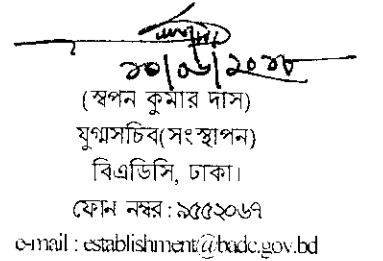 (স্বপন কুমার দাস)
যুগ্মসচিব(সংস্থাপন)
বিএডিসি, ঢাকা।
ফোন নম্বর : ৯৫৫২০৬৭
e-mail : establishment@badc.gov.bd